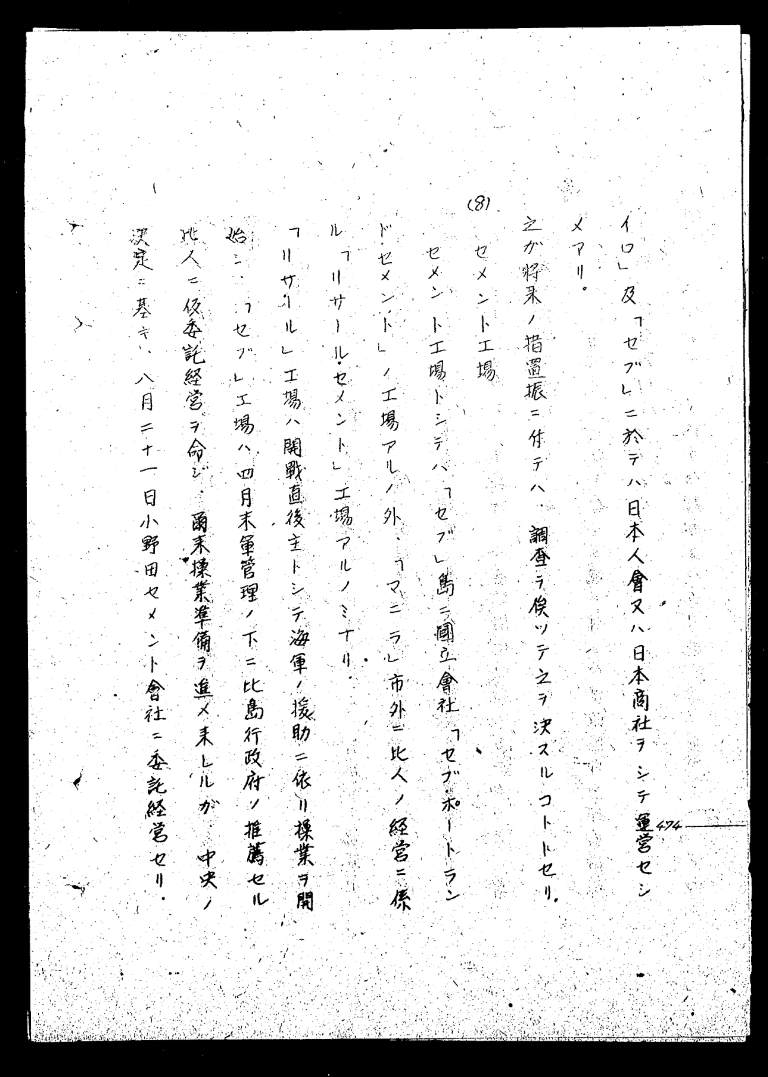 イロ」及「セブ」ニ於テハ日本人會又ハ日本商社ヲシテ運営セシ
メアリ。
之ガ将来ノ措置振ニ付テハ、調査ヲ俟ツテ之ヲ決スルコトトセリ。
(8)
セメント工場
セメント工場トシテハ「セブ」島ニ國立會社「セブ・ポートラン
ド・セメント」ノ工場アルノ外、「マニラ」市外ニ比人ノ経営ニ係
ル「リサール・セメント」工場アルノミナリ。
「リサール」工場ハ開戰直後主トシテ海軍ノ援助ニ依リ操業ヲ開
始シ、「セブ」工場ハ四月末軍管理ノ下ニ比島行政府ノ推薦セル
比人ニ仮委託経営ヲ命ジ、爾来操業準備ヲ進メ来レルガ、中央ノ
決定ニ基キ、八月二十一日小野田セメント會社ニ委託経営セリ。
474